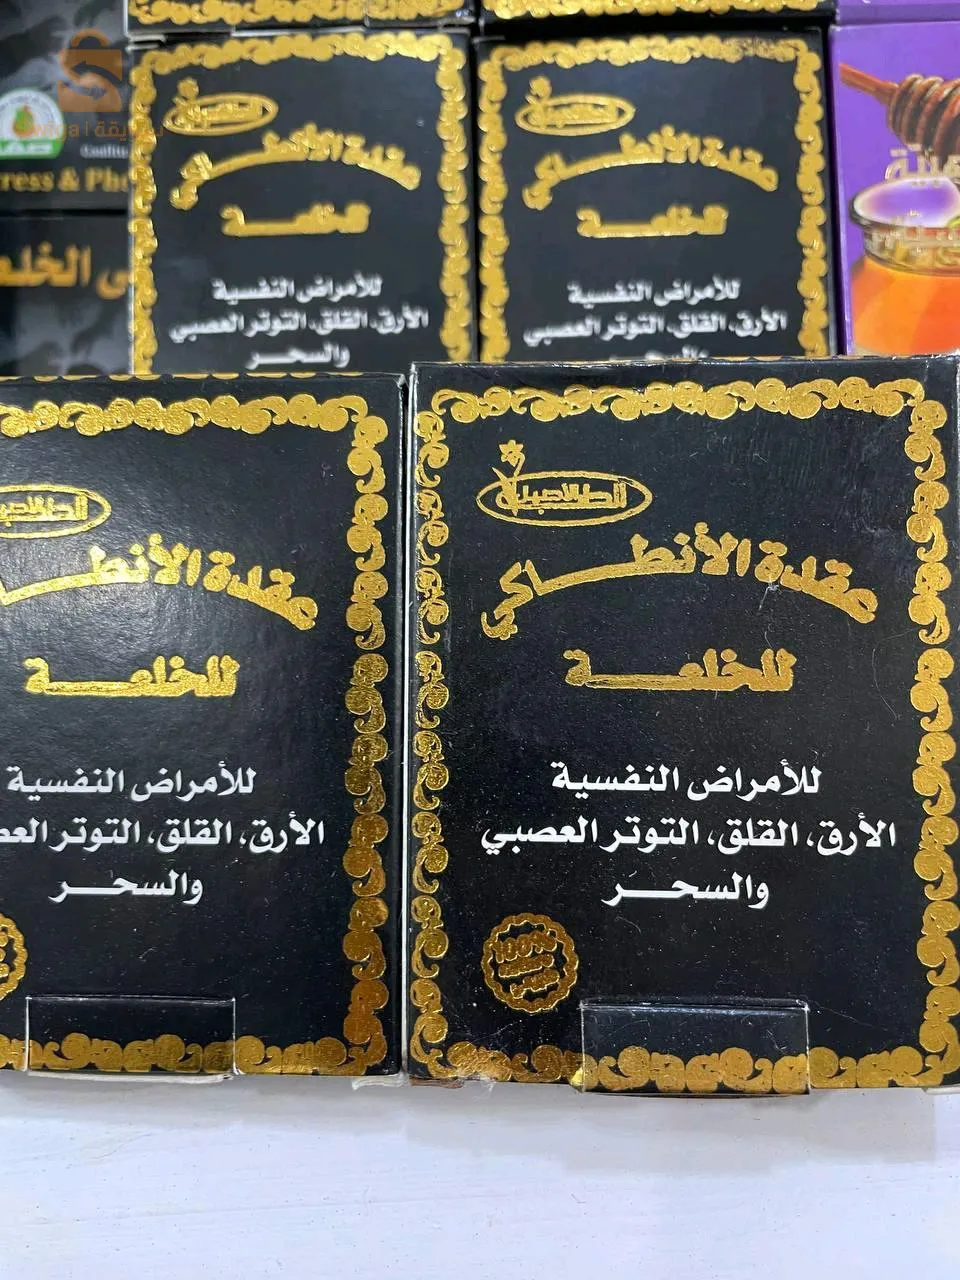 الأصيل
عقدة الأنطاكي
للخلعة
للأمراض النفسية
الأرق، القلق، التوتر العصبي
والسحر
عقدة الأنطاكي
للخلعة
للأمراض النفسية
الأرق، القلق، التوتر العصبي
ress & Pho
ى الخلع
عقدة الأنطا
للخلعة
للأمراض النفسية
الأرق، القلق، التوتر العص
والسحر
عقدة الأنطاكي
للخلعة
للأمراض النفسية
الأرق، القلق، التوتر العصبي
والسحر
100%